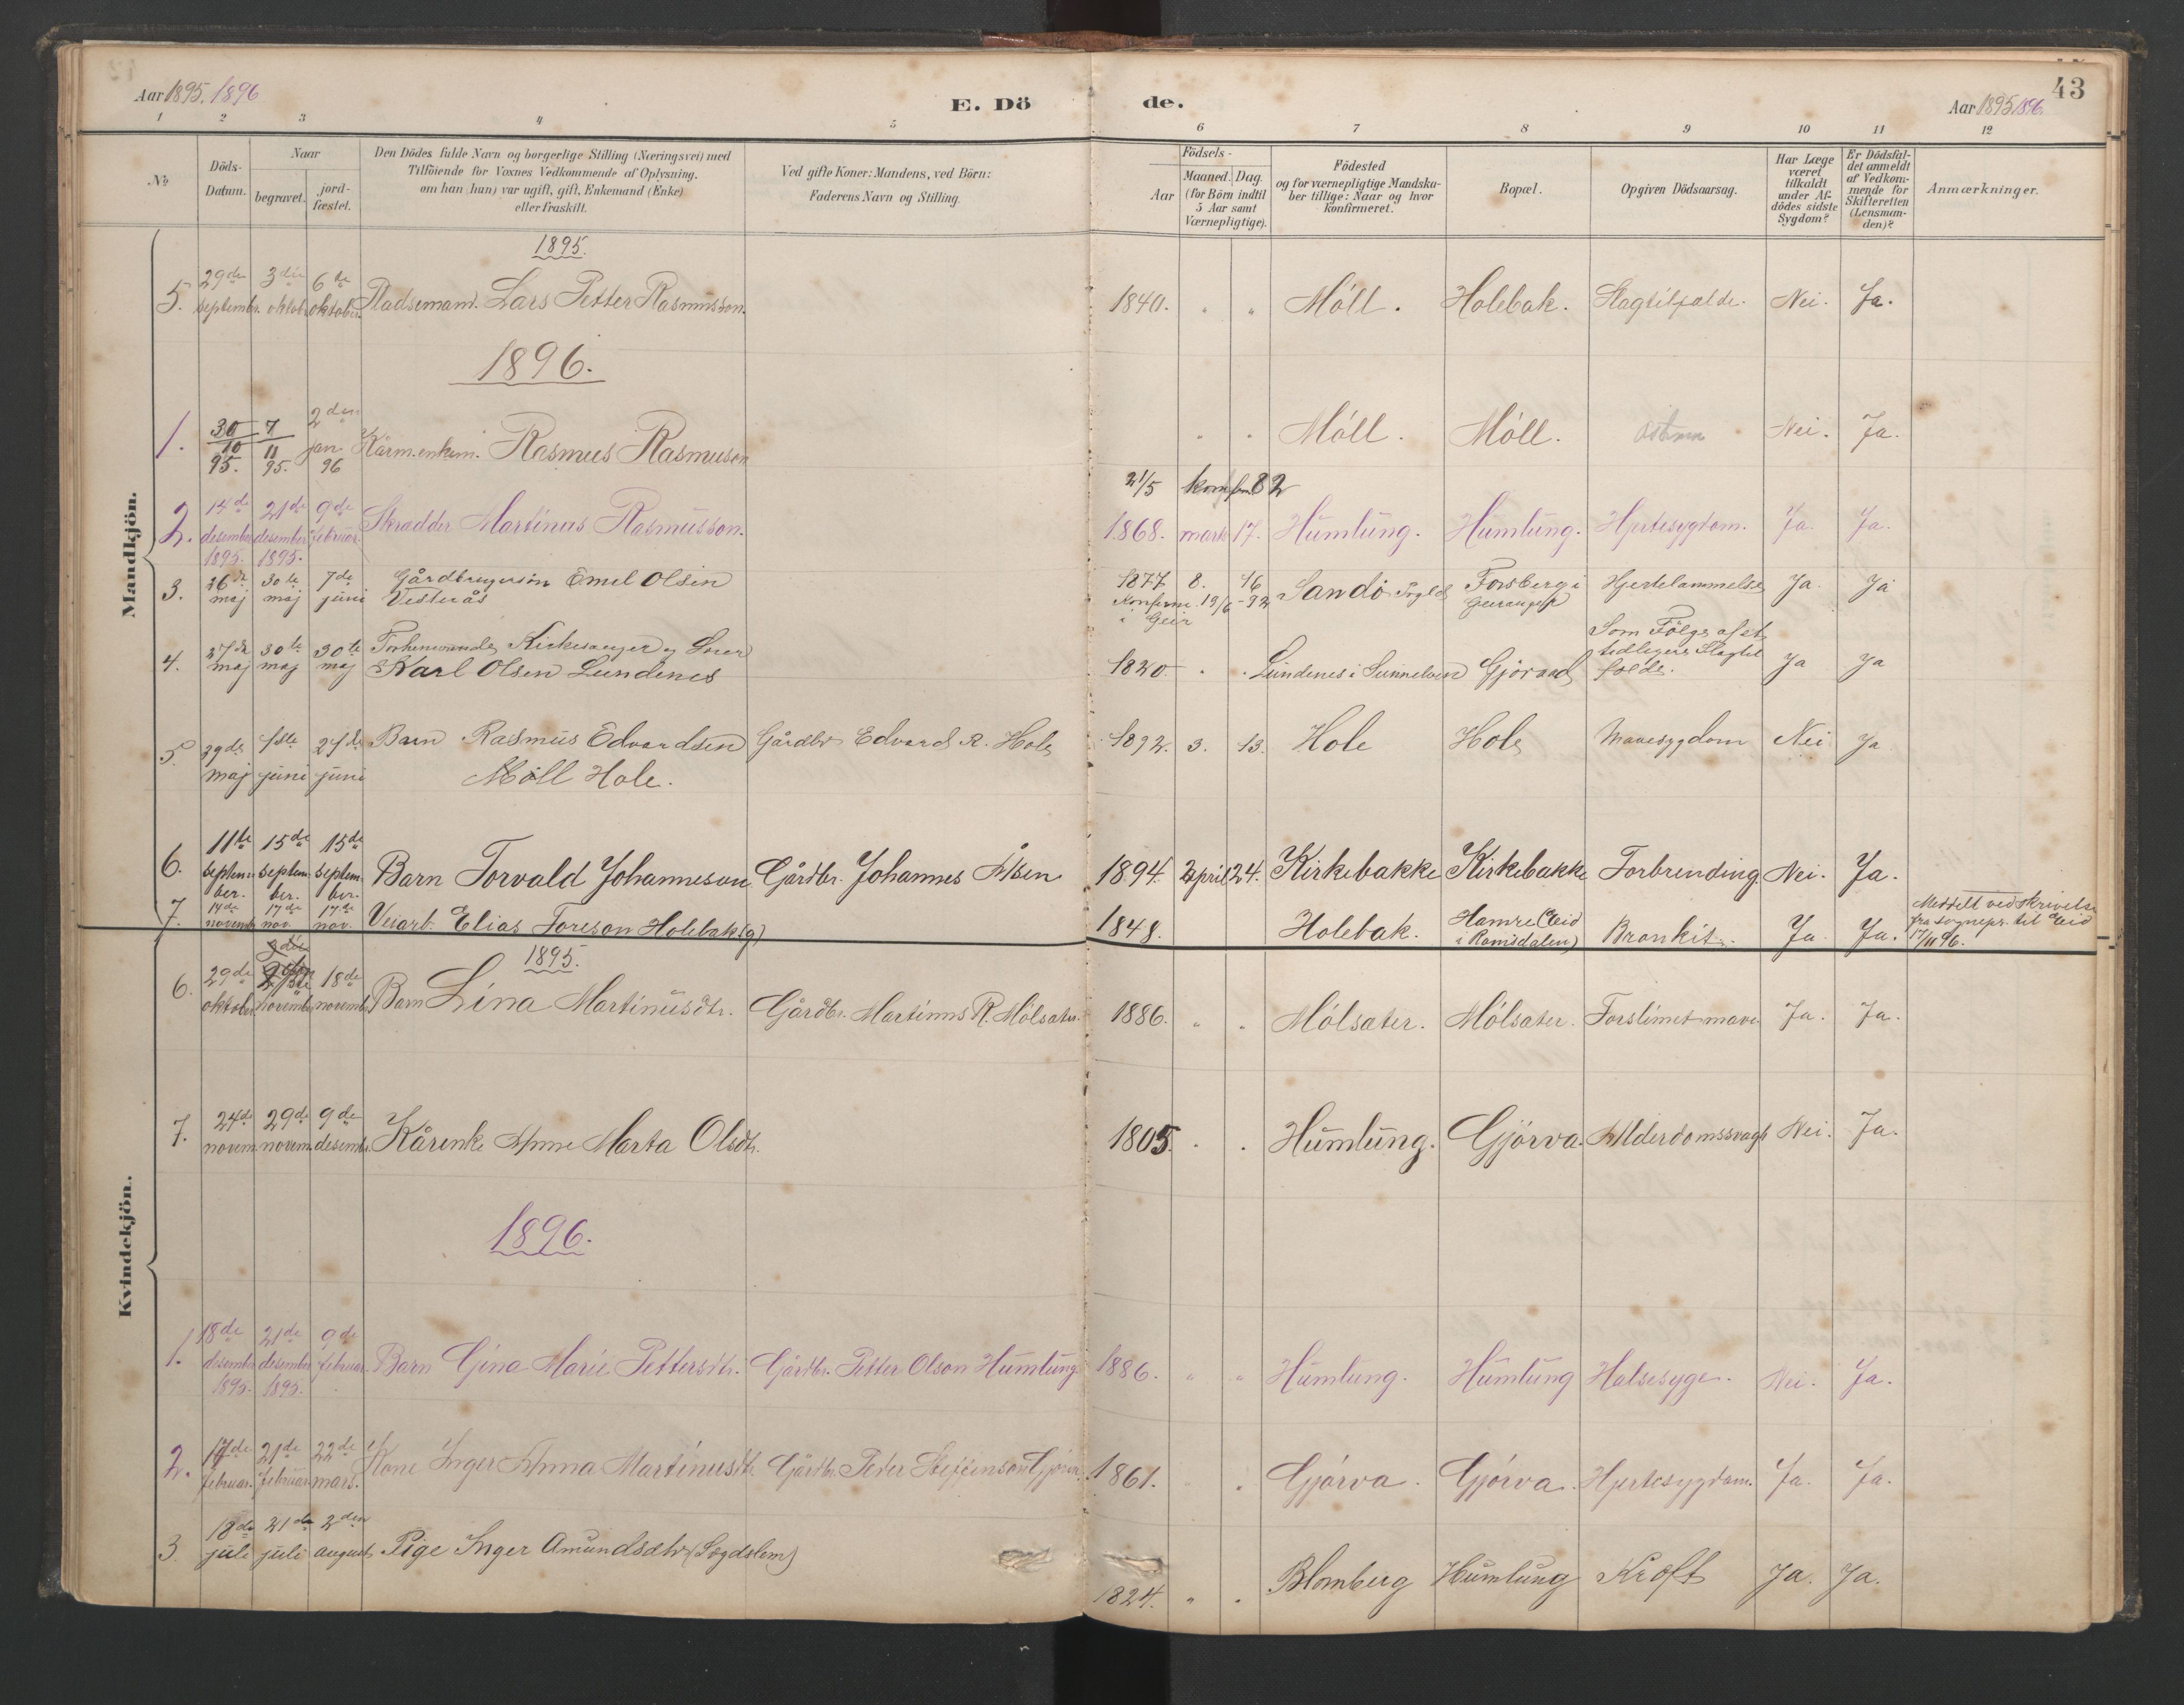 43
Aar 1895. 1896
E. Dö
de.
Aar 1895 1896.
1 2 3 4 5 6 7 8 9 10 11 12
№
Döds-
Datum.
Naar
begravet.
jord-
fæstet.
Den Dödes fulde Navn og borgerlige Stilling (Næringsvei) med
Tilföiende for Voxnes Vedkommende af Oplysning,
om han (hun) var ugift, gift, Enkemand (Enke)
eller fraskilt.
Ved gifte Koner: Mandens, ved Börn:
Faderens Navn og Stilling.
Födsels-
Aar
Maaned. Dag.
(for Börn indtil
5 Aar samt
Værnepligtige).
Födested
og for værnepligtige Mandska-
ber tillige: Naar og hvor
konfirmeret.
Bopæl.
Opgiven Dödsaarsag.
Har Læge
været
tilkaldt
under Af-
dödes sidste
Sygdom?
Er Dödsfal-
det anmeldt
af Vedkom-
mende for
Skifteretten
(Lensman-
den)?
Anmærkninger.
Mandkjön.
1895.
5. 29de septembr. 3die oktobr. 6te oktober. Pladsemand. Lars Petter Rasmusson. 1840. " " Möll. Holebak. Slagtilfælde. Nei. Ja.
1896.
1. 30/10 95. 7/11 95. 2den jan 96 Kårm.enkem. Rasmus Rasmuson " " Möll. Möll. Nei. Ja.
21/5 konfirm 82
2. 14de desember 1895. 21de desember 1895. 9de februar. Skradder Martinus Rasmusson. 1868. mars 17. Humlung. Humlung. Hjertesygdom. Ja. Ja.
3. 26de maj 30te maj 7de juni Gårdbrugersön Emel Olsen
Vesterås 1877 8. 16 Sandö Forsberg i
Geiranger Hjertelammelse Ja. Ja
Konfirm. 19/6 - 92
i Geir
4. 27de maj 30te maj 30te maj Forhenværende Kirkesanger og
Karl Olsen Lundenes 1820. " . Lundenes i Sunnelven Gjörvad Som Fölge af et
tidligere Slagtil
fælde. Ja Ja
5. 29de maj 1ste juni 21de juni Barn Rasmus Edvardsen Gårdbr Edvard R. Hole 1892. 3. 13. Hole Hole Mavesygdom Nei Ja
Möll Hole.
6. 11te september. 15de september. 15de september. Barn Torvald Johanneson Gårdbr. Johannes Ålsen 1894. april 24. Kirkebakke Kirkebakke Forbrending. Nei. Ja.
7. 14de novemb 17de nov. 17de nov. Veiarb. Elias Toreson Holebak (g) 1848. Holebak. Hamre (Eid
i Romsdalen) Bronkit. Ja. Ja. Meddelt ved skrivelse
fra sognepr. til Eid
17/11 96.
Kvindekjön.
1895.
6. 29de oktober. november. 18de novembr. Barn Lina Martinusdtr. Gårdbr. Martinus R. Mölsæter. 1886. " " Mölsæter. Mölsæter. Forslimet mave Ja. Ja.
7. 24de novem. 29de novem. 9de desembr. Kårenke Anne Marta Olsdtr. 1805. . . Humlung. Gjörva. Alderdomssvagh Nei. Ja.
1896.
1. 18de desember 1895. 21de desember 1895. 9de februar. Barn Gina Marie Pettersdtr. Gårdbr. Petter Olson Humlung. 1886. " " Humlung. Humlung Halsesyge. Nei. Ja.
2. 17de februar. 21de februar. 22de mars. Kone Inger Anna Martinusdtr. Gårdbr. Peder Steffenson Gjörva. 1861. Gjörva. Gjörva. Hjertesygdom. Ja. Ja.
3. 18de juli 21de juli 2den august Pige Inger Amundsdtr (Lægdslem) 1824. " . Blomberg Humlung Kræft Ja. Ja.